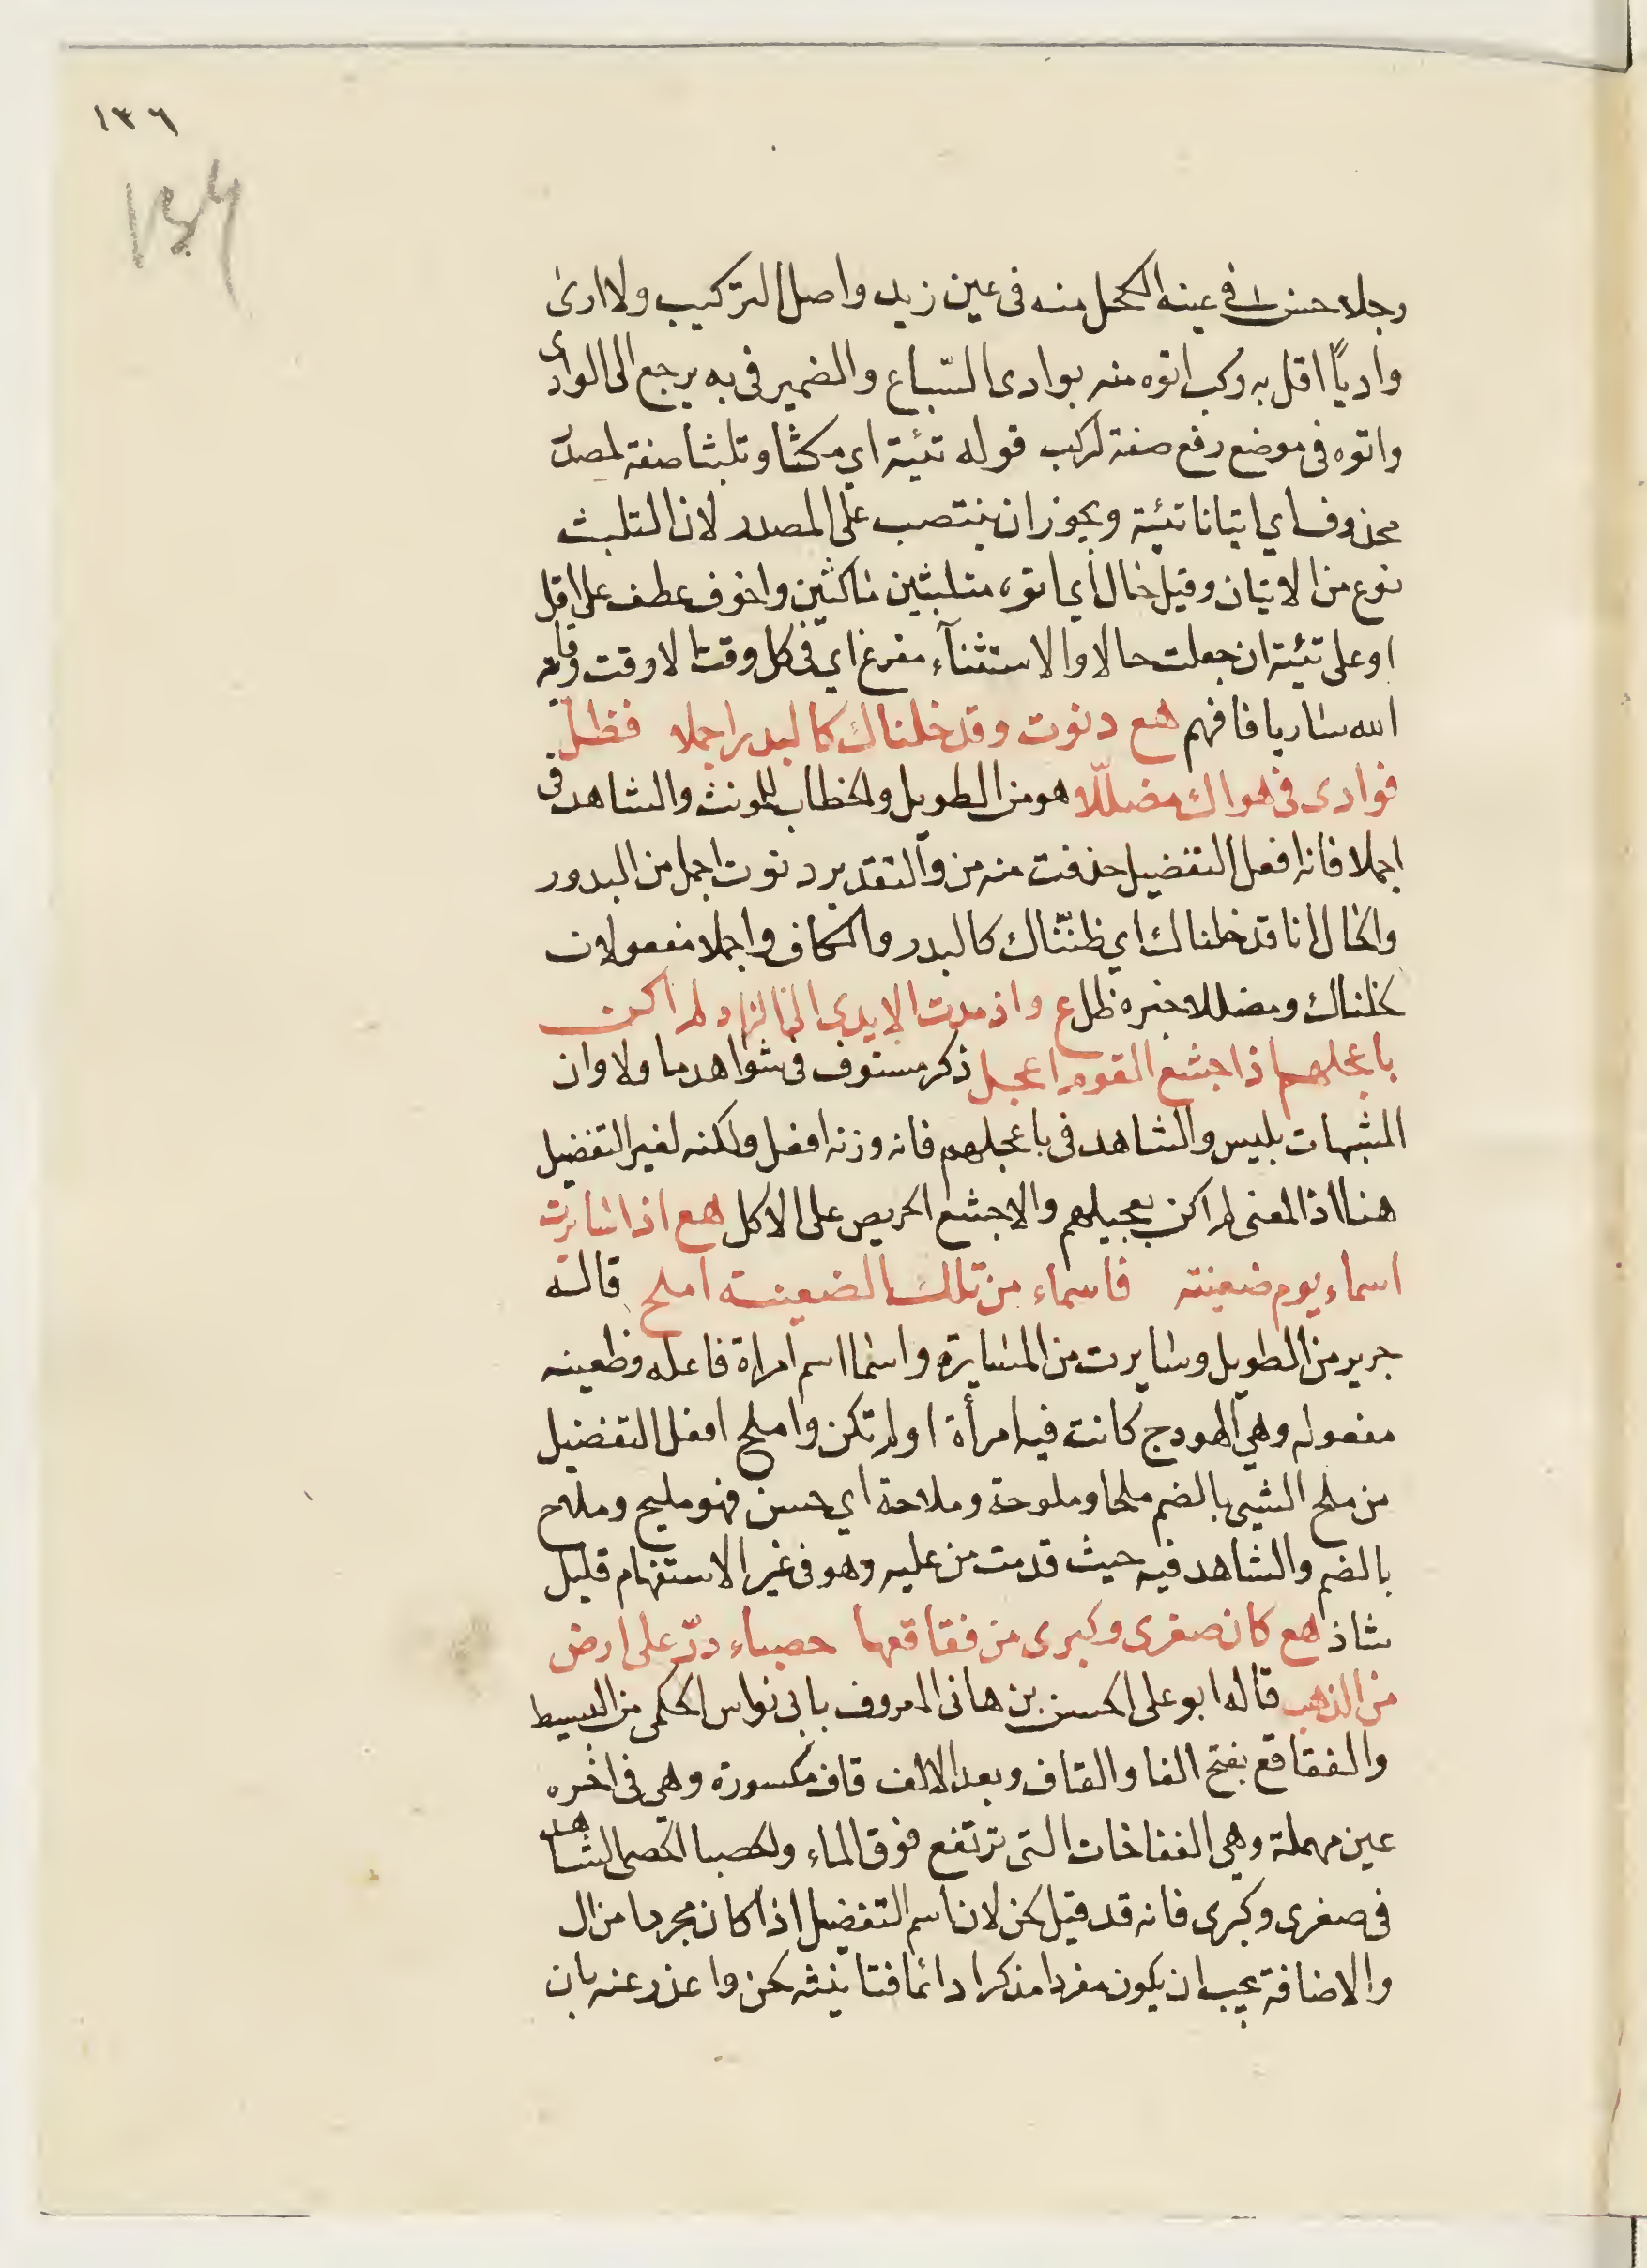 ١٣٦
١٣٦
رجلا حسن في عينه الكحل منه فى عين زيد واصل التركيب ولا ارى
واديًا اقل به ركب اتوه منه بوادى السّباع والضمير فى به يرجع الى الوادى
واتوه فى موضع رفع صفة لركب قوله تئية اي مكثا وتلبثا صفة لمصدر
محذوف اي اتيانا تئية ويجوز ان ينتصب على المصدر لان التلبث
نوع من الاتيان وقيل حال اي اتوه متلبثين ماكثين واخوف عطف على اقل
او على تئية ان جعلت حالا والاستثنآء مفرغ اي فى كل وقت الا وقت وقاية
الله ساريا فافهم هع دنوت وقد خلناك كالبدر اجملا فظلّ
فوادى فى هواك مضلّلا هو من الطويل والخطاب للمونث والشاهد فى
اجملا فانه افعل التفضيل حذفت منه من والتقدير دنوت اجمل من البدور
والحال انا قد خلناك اي ظنناك كالبدر والكاف واجملا مفعولان
لخلناك ومضللا خبره ظل ع واذ مدت الايدى الى الزاد لم اكن
باعجلهم اذ اجشع القوم اعجل ذكر مستوف فى شواهد ما ولا وان
المشبهات بليس والشاهد فى باعجلهم فانه وزنه افعل ولكنه لغير التفضيل
هنا اذ المعنى لم اكن بعجيلهم والاجشع الحريص على الاكل هع اذا سايرت
اسماء يوم ضعينة فاسماء من تلك الضعينة املح قاله
جرير من الطويل وسايرت من المسايرة واسما اسم امراة فاعله وظعينه
مفعوله وهي الهودج كانت فيه امرأة او لم تكن واملح افعل التفضيل
من ملح الشيى بالضم ملحا وملوحة وملاحة اي حسن فهو مليح وملاح
بالضم والشاهد فيه حيث قدمت من عليه وهو فى غير الاستفهام قليل
شاذ هع كان صغرى وكبرى من فقاقعها حصباء درّ على ارض
من الذهب قاله ابو على الحسن بن هانى المعروف بابى نواس الحكمى من البسيط
والفقاقع بفتح الفا والقاف وبعد الالف قاف مكسورة وهي فى اخره
عين مهملة وهي النفاخات التى ترتفع فوق الماء والحصبا الحصى الشاهد
فى صغرى وكبرى فانه قد قيل لحن لان اسم التفضيل اذا كان مجردا من ال
والاضافة يجب ان يكون مفردا مذكرا دائما فتانيثه لحن واعذر عنه بان